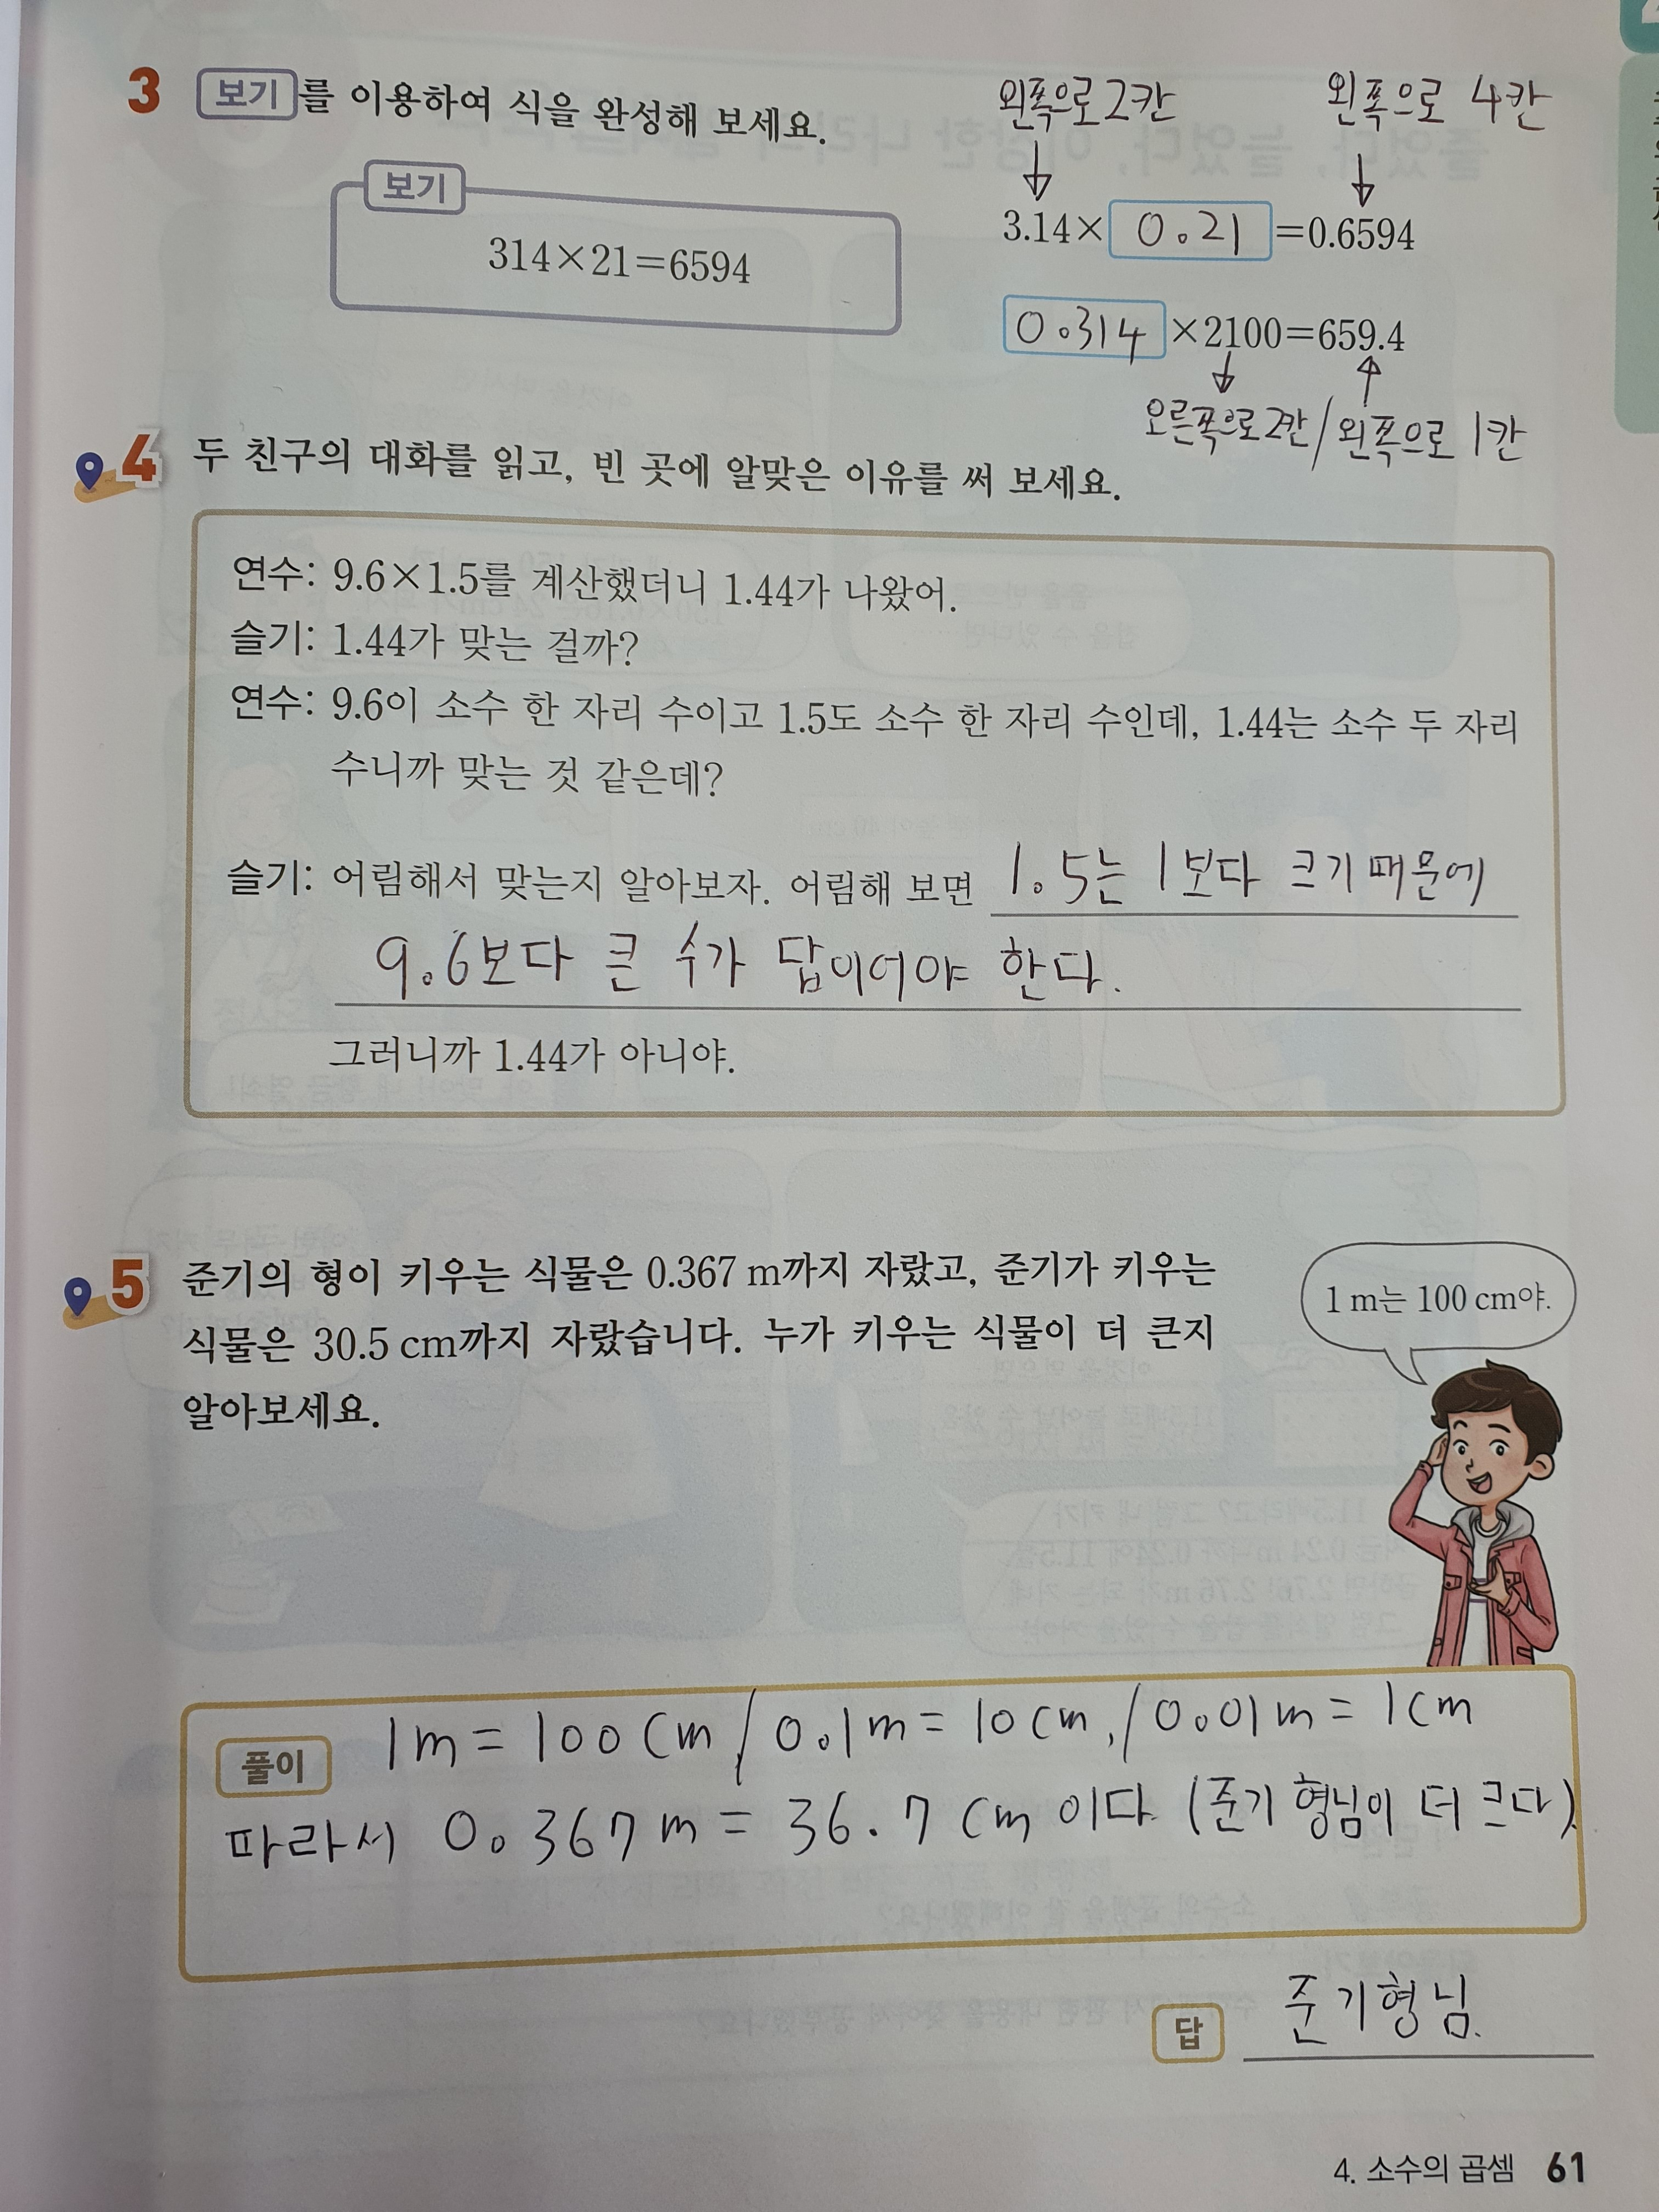 3 보기를 이용하여 식을 완성해 보세요.
왼쪽으로 2칸
왼쪽으로 4칸
보기
314×21=6594
3.14× 0.21 =0.6594
0.314 ×2100=659.4
오른쪽으로 2칸/왼쪽으로 1칸
4 두 친구의 대화를 읽고, 빈 곳에 알맞은 이유를 써 보세요.
연수: 9.6×1.5를 계산했더니 1.44가 나왔어.
슬기: 1.44가 맞는 걸까?
연수: 9.6이 소수 한 자리 수이고 1.5도 소수 한 자리 수인데, 1.44는 소수 두 자리
수니까 맞는 것 같은데?
슬기: 어림해서 맞는지 알아보자. 어림해 보면 1.5는 1보다 크기 때문에
9.6보다 큰 수가 답이어야 한다.
그러니까 1.44가 아니야.
5 준기의 형이 키우는 식물은 0.367 m까지 자랐고, 준기가 키우는
식물은 30.5 cm까지 자랐습니다. 누가 키우는 식물이 더 큰지
알아보세요.
1 m는 100 cm야.
풀이 1m = 100cm / 0.1m = 10cm, / 0.01m = 1cm
따라서 0.367m = 36.7cm 이다. (준기 형님이 더 크다).
답 준기형님.
4. 소수의 곱셈 61